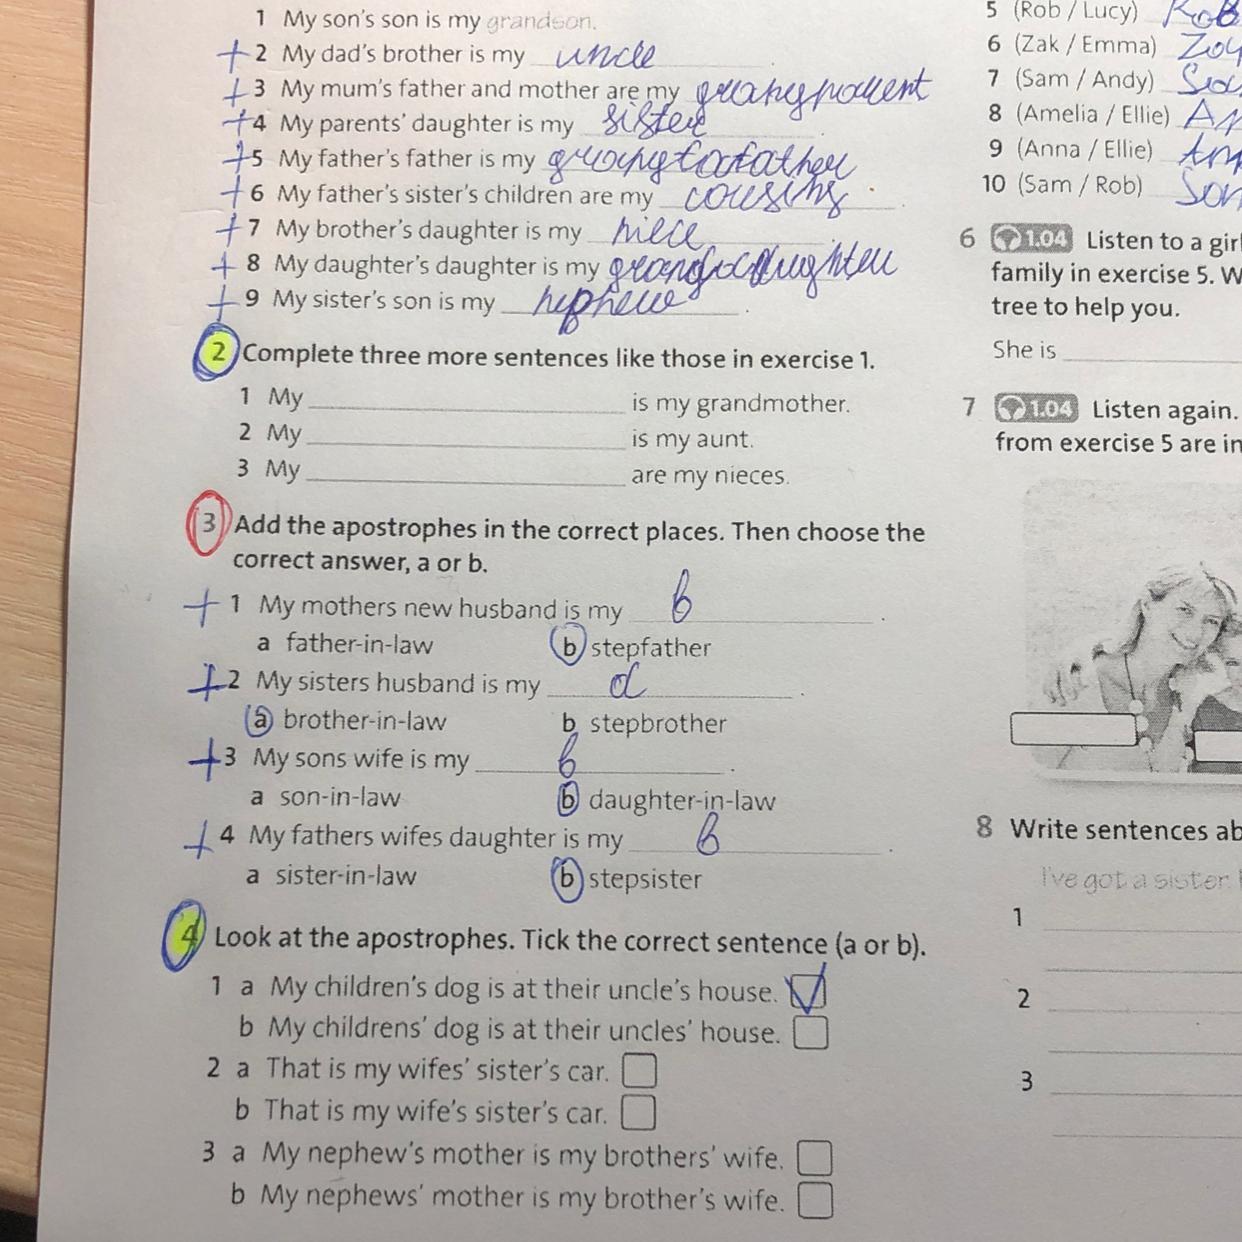 1 My son's son is my grandson.
+ 2 My dad's brother is my uncle
+ 3 My mum's father and mother are my
+ 4 My parents' daughter is my sister
+ 5 My father's father is my
+ 6 My father's sister's children are my cousins.
+ 7 My brother's daughter is my niece
+ 8 My daughter's daughter is my
+ 9 My sister's son is my nephew.
2 Complete three more sentences like those in exercise 1.
1 My ____ is my grandmother.
2 My ____ is my aunt.
3 My ____ are my nieces.
3 Add the apostrophes in the correct places. Then choose the
correct answer, a or b.
+ 1 My mothers new husband is my b.
a father-in-law b stepfather
+ 2 My sisters husband is my a.
a brother-in-law b stepbrother
+ 3 My sons wife is my b.
a son-in-law b daughter-in-law
+ 4 My fathers wifes daughter is my b.
a sister-in-law b stepsister
4 Look at the apostrophes. Tick the correct sentence (a or b).
1 a My children's dog is at their uncle's house.
b My childrens' dog is at their uncles' house.
2 a That is my wifes' sister's car.
b That is my wife's sister's car.
3 a My nephew's mother is my brothers' wife.
b My nephews' mother is my brother's wife.
5 (Rob / Lucy)
6 (Zak / Emma)
7 (Sam / Andy)
8 (Amelia / Ellie)
9 (Anna / Ellie)
10 (Sam / Rob)
6 1.04 Listen to a
family in exercise 5.
tree to help you.
She is
7 1.04 Listen again.
from exercise 5 are
8 Write sentences
I've got a sister.
1
2
3